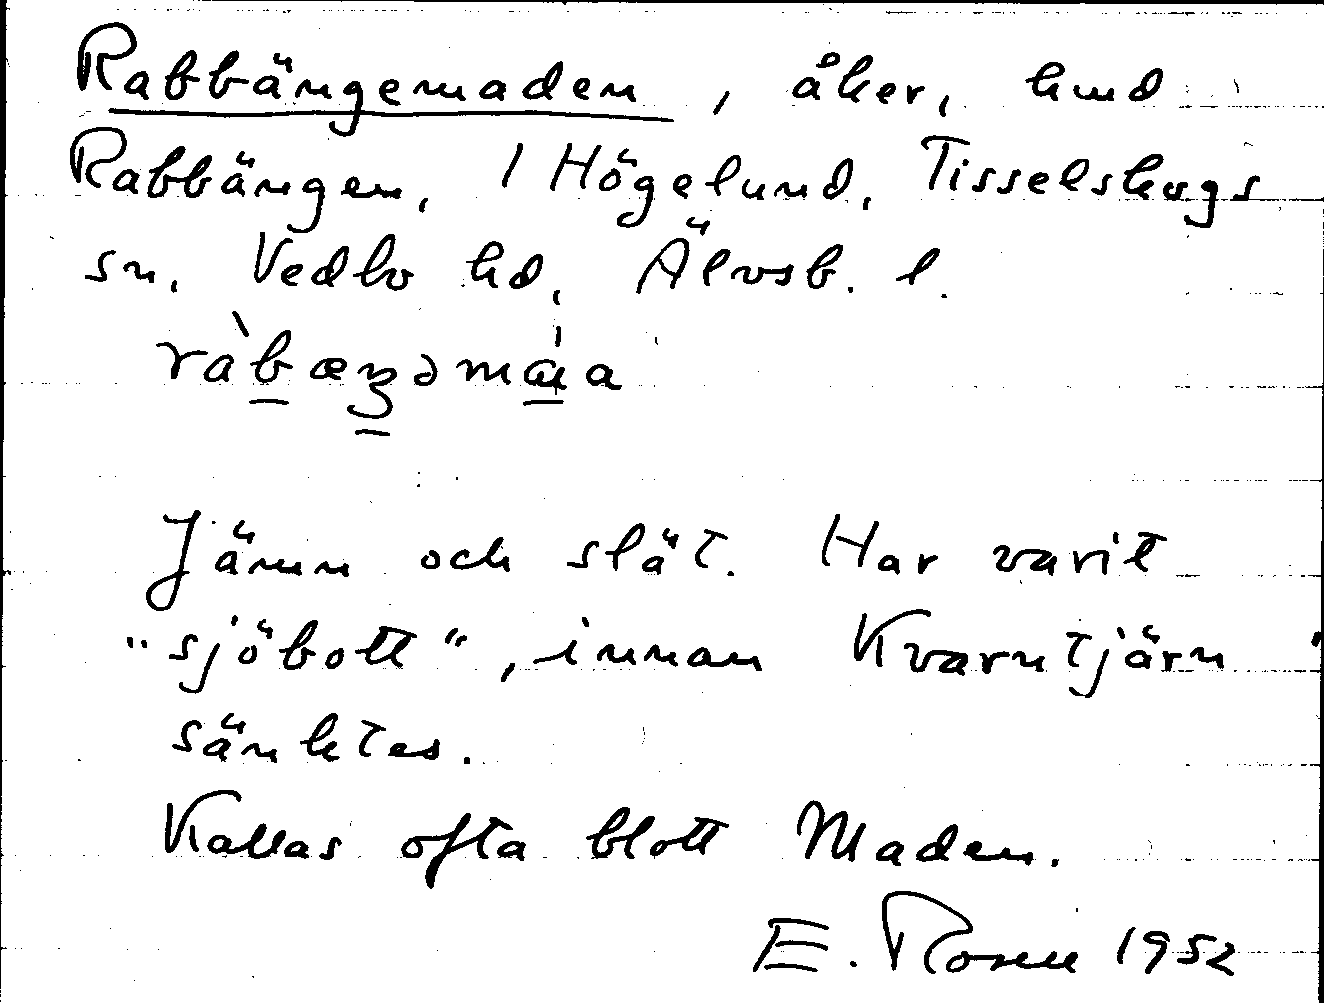 Rabbängemaden, åker, hmd
Rabbängen, 1 Högelund, Tisselskogs
sn, Vedbo hd, Älvsb. l.
Jämn och slät. Har varit
"sjöbott", innan Kvarntjärn
sänktes.
Kallas ofta blott Maden.
E. Rosell 1952